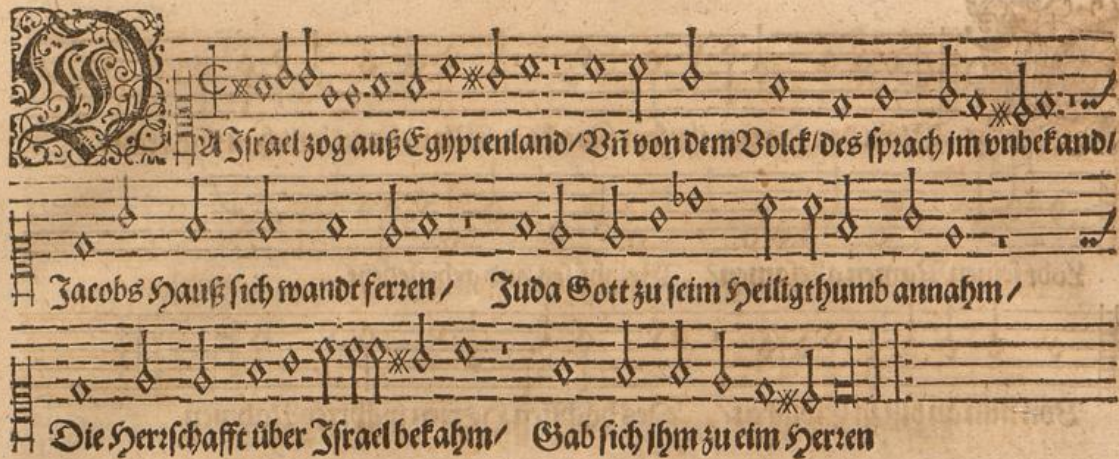 DA Jsrael zog auß Egyptenland/ Vn̄ von dem Volck/ des sprach jm vnbekand/
Jacobs Hauß sich wandt ferren/ Juda Gott zu seim Heiligthumb annahm/
Die Herrschafft über Jsrael bekahm/ Gab sich jhm zu eim Herren